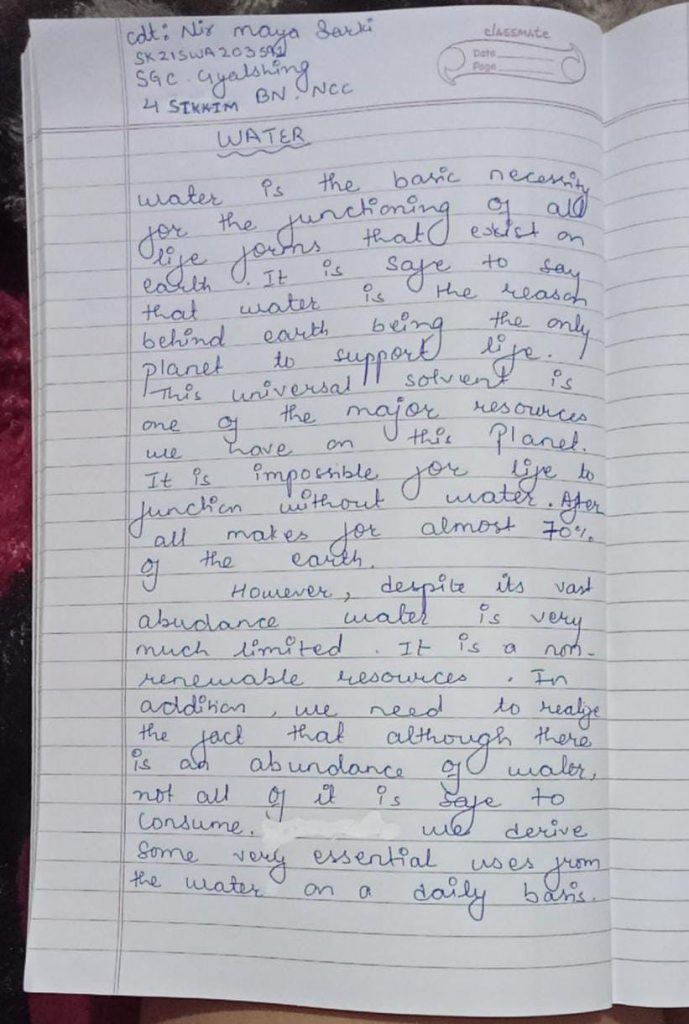 cdt: Nir maya Sarki
CLASSMATE
Date
Page
SGC. Gyalshing
4 SIKKIM BN. NCC
WATER
water is the basic necessity
for the functioning of all
life forms that exist on
earth. It is safe to say
that water is the reason
behind earth being the only
planet to support life.
This universal solvent is
one of the major resources
we have on this Planet.
It is impossible for life to
function without water. After
all makes for almost 70%
of the earth.
However, despite its vast
abudance water is very
much limited. It is a non-
renewable resources. In
addition, we need to realize
the fact that although there
is an abundance of water,
not all of it is safe to
Consume. we derive
Some very essential uses from
the water on a daily basis.